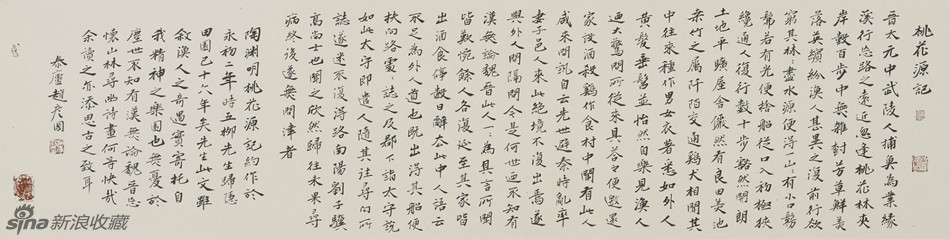 桃花源記
晉太元中武陵人捕魚為業緣
溪行忘路之遠近忽逢桃花林夾
岸數百步中無雜樹芳草鮮美
落英繽紛漁人甚異之復前行欲
窮其林〻盡水源便得一山〻有小口髣
髴若有光便捨船從口入初極狹
纔通人復行數十步豁然開朗
土地平曠屋舍儼然有良田美池
桑竹之屬阡陌交通雞犬相聞其
中往來種作男女衣著悉如外人
黃髮垂髫並怡然自樂見漁人
迺大驚問所從來具答之便邀還
家設酒殺雞作食村中聞有此人
咸來問訊自云先世避秦時亂率
妻子邑人來此絕境不復出焉遂
與外人間隔問今是何世迺不知有
漢無論魏晉此人一〻為具言所聞
皆歎惋餘人各復延至其家皆
出酒食停數日辭去此中人語云
不足為外人道也既出得其船便
扶向路處〻誌之及郡下詣太守說
如此太守即遣人隨其往尋向所
誌遂迷不復得路南陽劉子驥
高尚士也聞之欣然歸往未果尋
病終後遂無問津者
陶淵明桃花源記約作於
永初二年時五柳先生歸隱
田園已十六年矣先生此文雖
敘漁人之奇遇實寄托自
我精神之樂園也無憂於
塵世不知有漢無論魏晉忘
懷山林尋幽詩畫何等快哉
余讀之亦添思古之致耳
泰廬趙彥國
sina新浪收藏